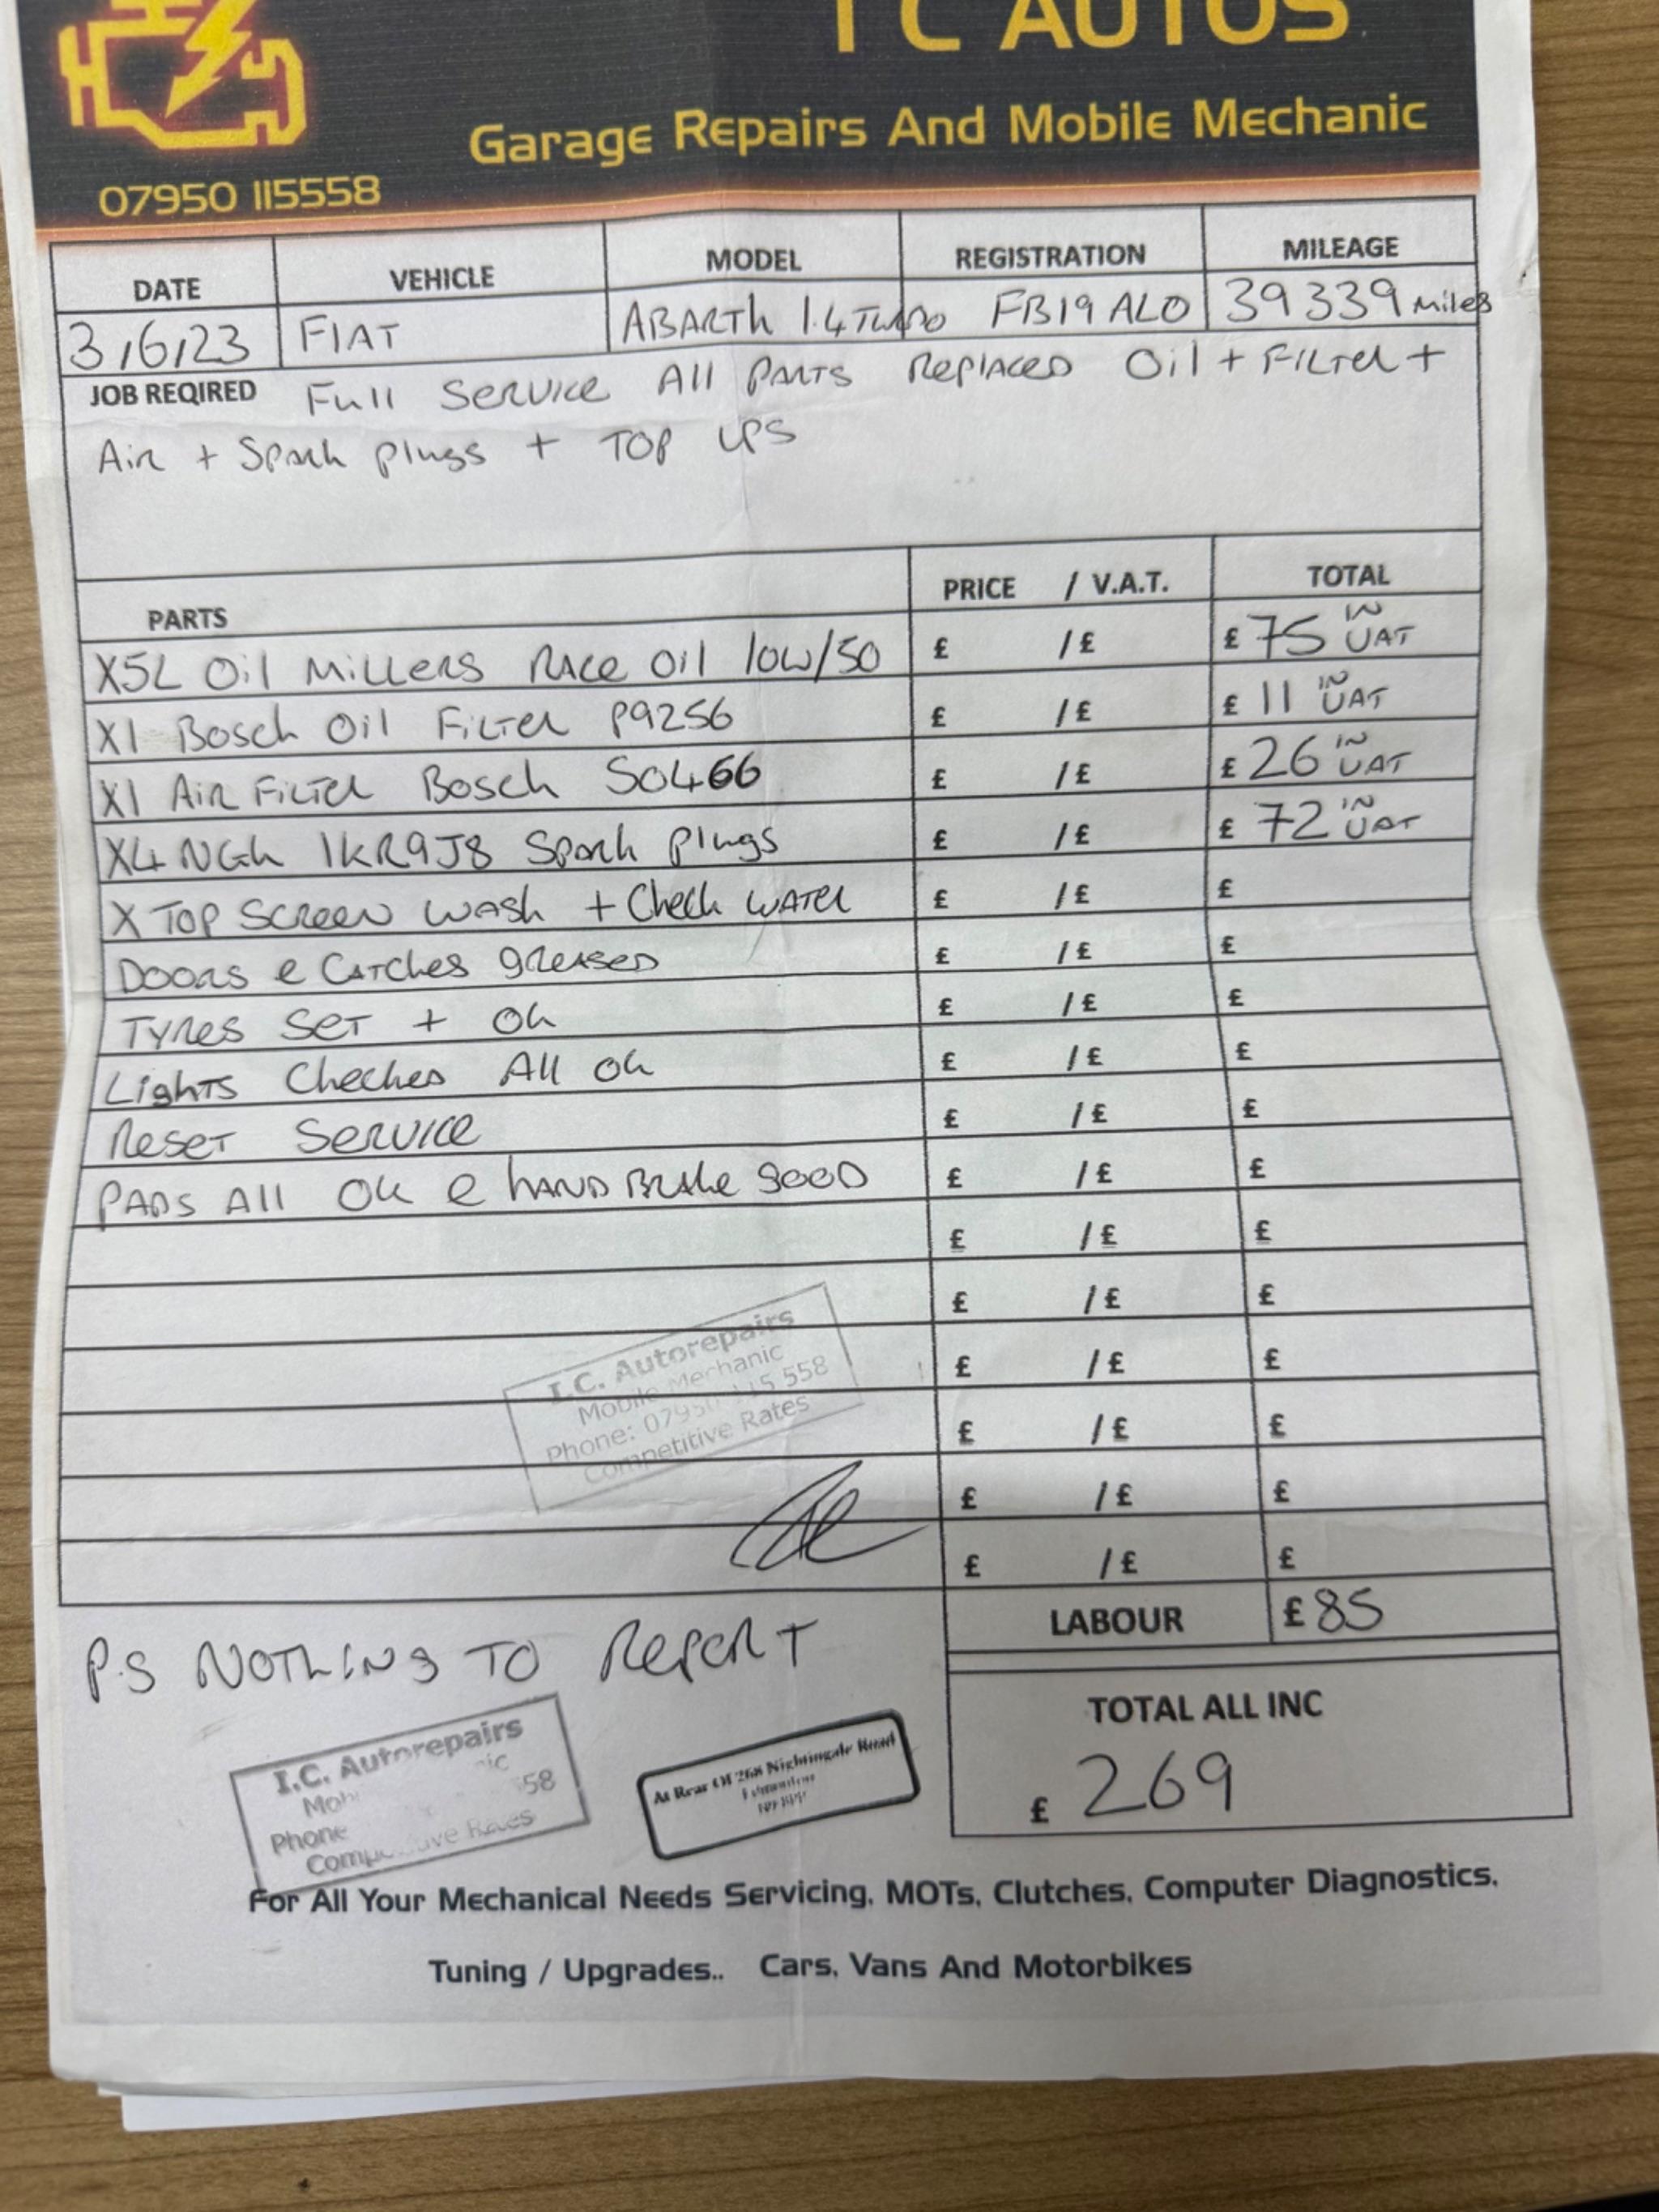 I C AUTOS
Garage Repairs And Mobile Mechanic
07950 115558
DATE VEHICLE MODEL REGISTRATION MILEAGE
3/6/23 FIAT ABARTH 1.4 TURBO FB19 ALO 39339 miles
JOB REQIRED Full Service All Parts Replaced Oil + Filter +
Air + Spark plugs + TOP UPS
PARTS PRICE / V.A.T. TOTAL
X5L Oil Millers Race Oil 10W/50 £ /£ £ 75 IN VAT
X1 Bosch Oil Filter P9256 £ /£ £ 11 IN VAT
X1 Air Filter Bosch S0466 £ /£ £ 26 IN VAT
X4 NGK 1KR9J8 Spark Plugs £ /£ £ 72 IN VAT
X TOP SCREEN WASH + Check WATER £ /£ £
DOORS e CATCHES greased £ /£ £
TYRES SET + OK £ /£ £
Lights Checked All OK £ /£ £
Reset Service £ /£ £
PADS All OK e HAND BRAKE GOOD £ /£ £
£ /£ £
£ /£ £
£ /£ £
£ /£ £
£ /£ £
£ /£ £
I.C. Autorepairs
Mobile Mechanic
Phone: 07950 115 558
Competitive Rates
LABOUR £ 85
P.S NOTHING TO REPORT
TOTAL ALL INC
£ 269
I.C. Autorepairs
Phone 58
At Rear Of 268 Nightingale Road
For All Your Mechanical Needs Servicing, MOTs, Clutches, Computer Diagnostics,
Tuning / Upgrades.. Cars, Vans And Motorbikes